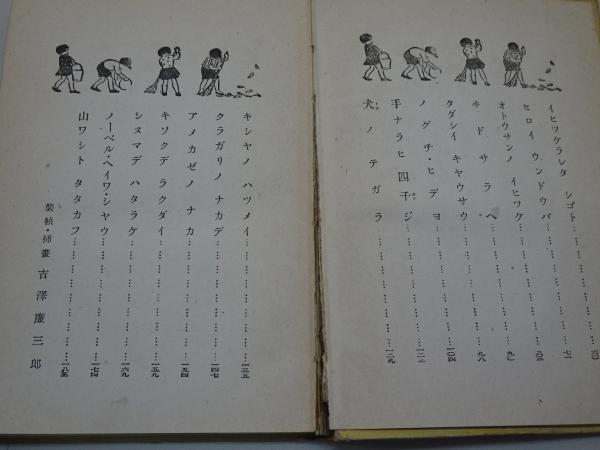 イヒツケラレタ シゴト……………六〇
ヒロイ ウンドウバ……………八三
オトウサンノ イヒツケ……………九〇
ホドサラヘ……………九八
タダシイ キヤウサウ……………一〇四
ノグチ・ヒデヨ……………一二二
手ナラヒ 四千ジ……………一二九
犬ノ テガラ……………
キシヤノ ハツメイ……………一三五
クラガリノ ナカデ……………一四七
アメカゼノ ナカ……………一五四
キソクデ ラクダイ……………一五九
シヌマデ ハタラケ……………一六九
ノーベル・ヘイワ・シヤウ……………一七四
山ワシト タタカフ……………一八五
装幀・挿畫 吉澤廉三郎